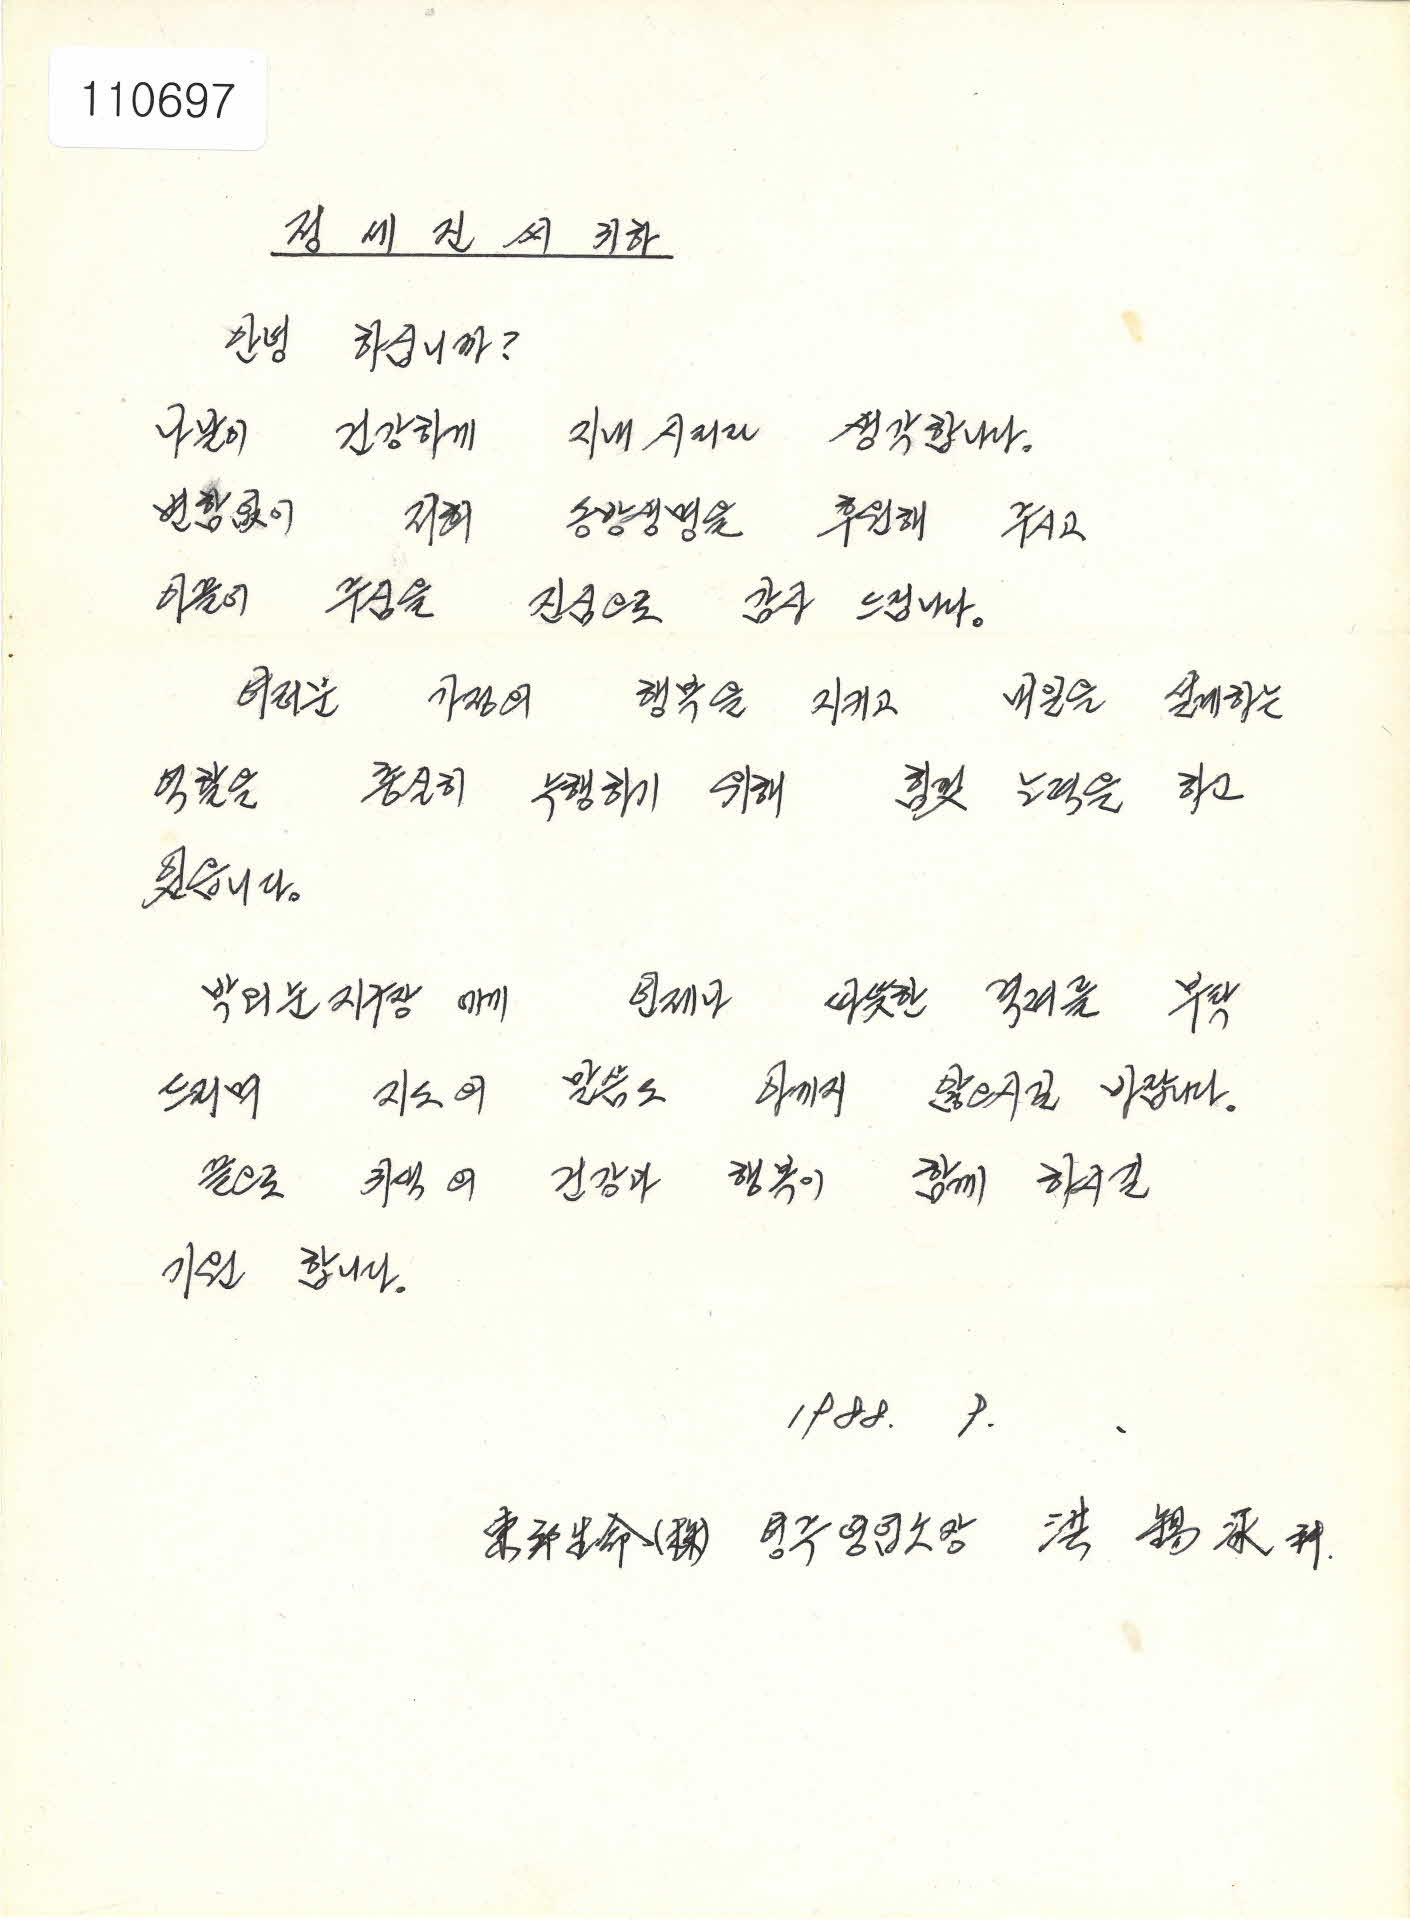 110697
정세진씨 귀하
안녕 하십니까?
나날이 건강하게 지내시리라 생각합니다.
변함없이 저희 동방생명을 후원해 주시고
이끌어 주심을 진심으로 감사 드립니다.
여러분 가정의 행복을 지키고 내일을 설계하는
역할을 충실히 수행하기 위해 힘껏 노력을 하고
있습니다.
지구장 에게 언제나 따뜻한 격려를 부탁
드리며 지도의 말씀도 아끼지 않으시길 바랍니다.
끝으로 귀댁의 건강과 행복이 함께 하시길
기원 합니다.
1988. 9. .
東邦生命(株) 영주영업소장 洪錫承 拜.